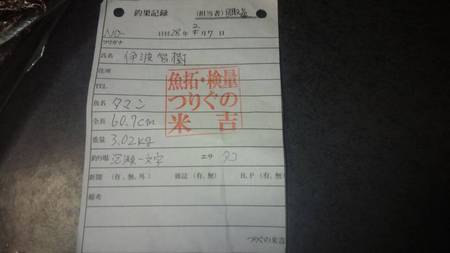 釣果記録 (担当者)
NO- H28年2月7日
フリガナ
氏名 伊波 智樹
住所
TEL
魚拓・検量
つりぐの
米吉
魚名 タマン
全長 60.7cm
重量 3.02kg
釣り場 一文字 エサ タコ
新聞 (有、無、外) 雑誌 (有、無) H.P (有、無)
備考
つりぐの米吉